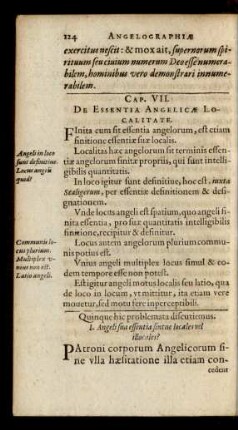 124 ANGELOGRAPHIÆ
exercitus nescit: & mox ait, supernorum spi-
rituum seu ciuium numerum Deo esse numera-
bilem, hominibus vero demonstrari innume-
rabilem.
CAP. VII.
DE ESSENTIA ANGELICÆ LO-
CALITATE.
FInita cum sit essentia angelorum, est etiam
finitione essentiæ suæ localis.
Angeli in loco
sunt definitiue.
Locus angeli
quid?
Localitas hæc angelorum sit terminis essenti-
æ angelorum finitæ propriis, qui sunt intelli-
gibilis quantitatis.
In loco igitur sunt definitiue, hoc est, iuxta
Scaligerum, per essentiæ definitionem & desi-
gnationem.
Vnde locus angeli est spatium, quo angeli fi-
nita essentia, pro suæ quantitatis intelligibilis
finitione, recipitur & definitur.
Communis lo-
cus plurium.
Multiplex v-
nius non est.
Latio angeli.
Locus autem angelorum plurium commu-
nis potius est.
Vnius angeli multiplex locus simul & eo-
dem tempore esse non potest.
Est igitur angeli motus localis seu latio, qua
de loco in locum, vt mittitur, ita etiam vere
mouetur, sed motu fere imperceptibili.
Quinque hic problemata discutiemus.
I. Angeli sua essentia sintne locales vel
illocales?
PAtroni corporum Angelicorum si-
ne vlla hæsitatione illa etiam con-
cedent